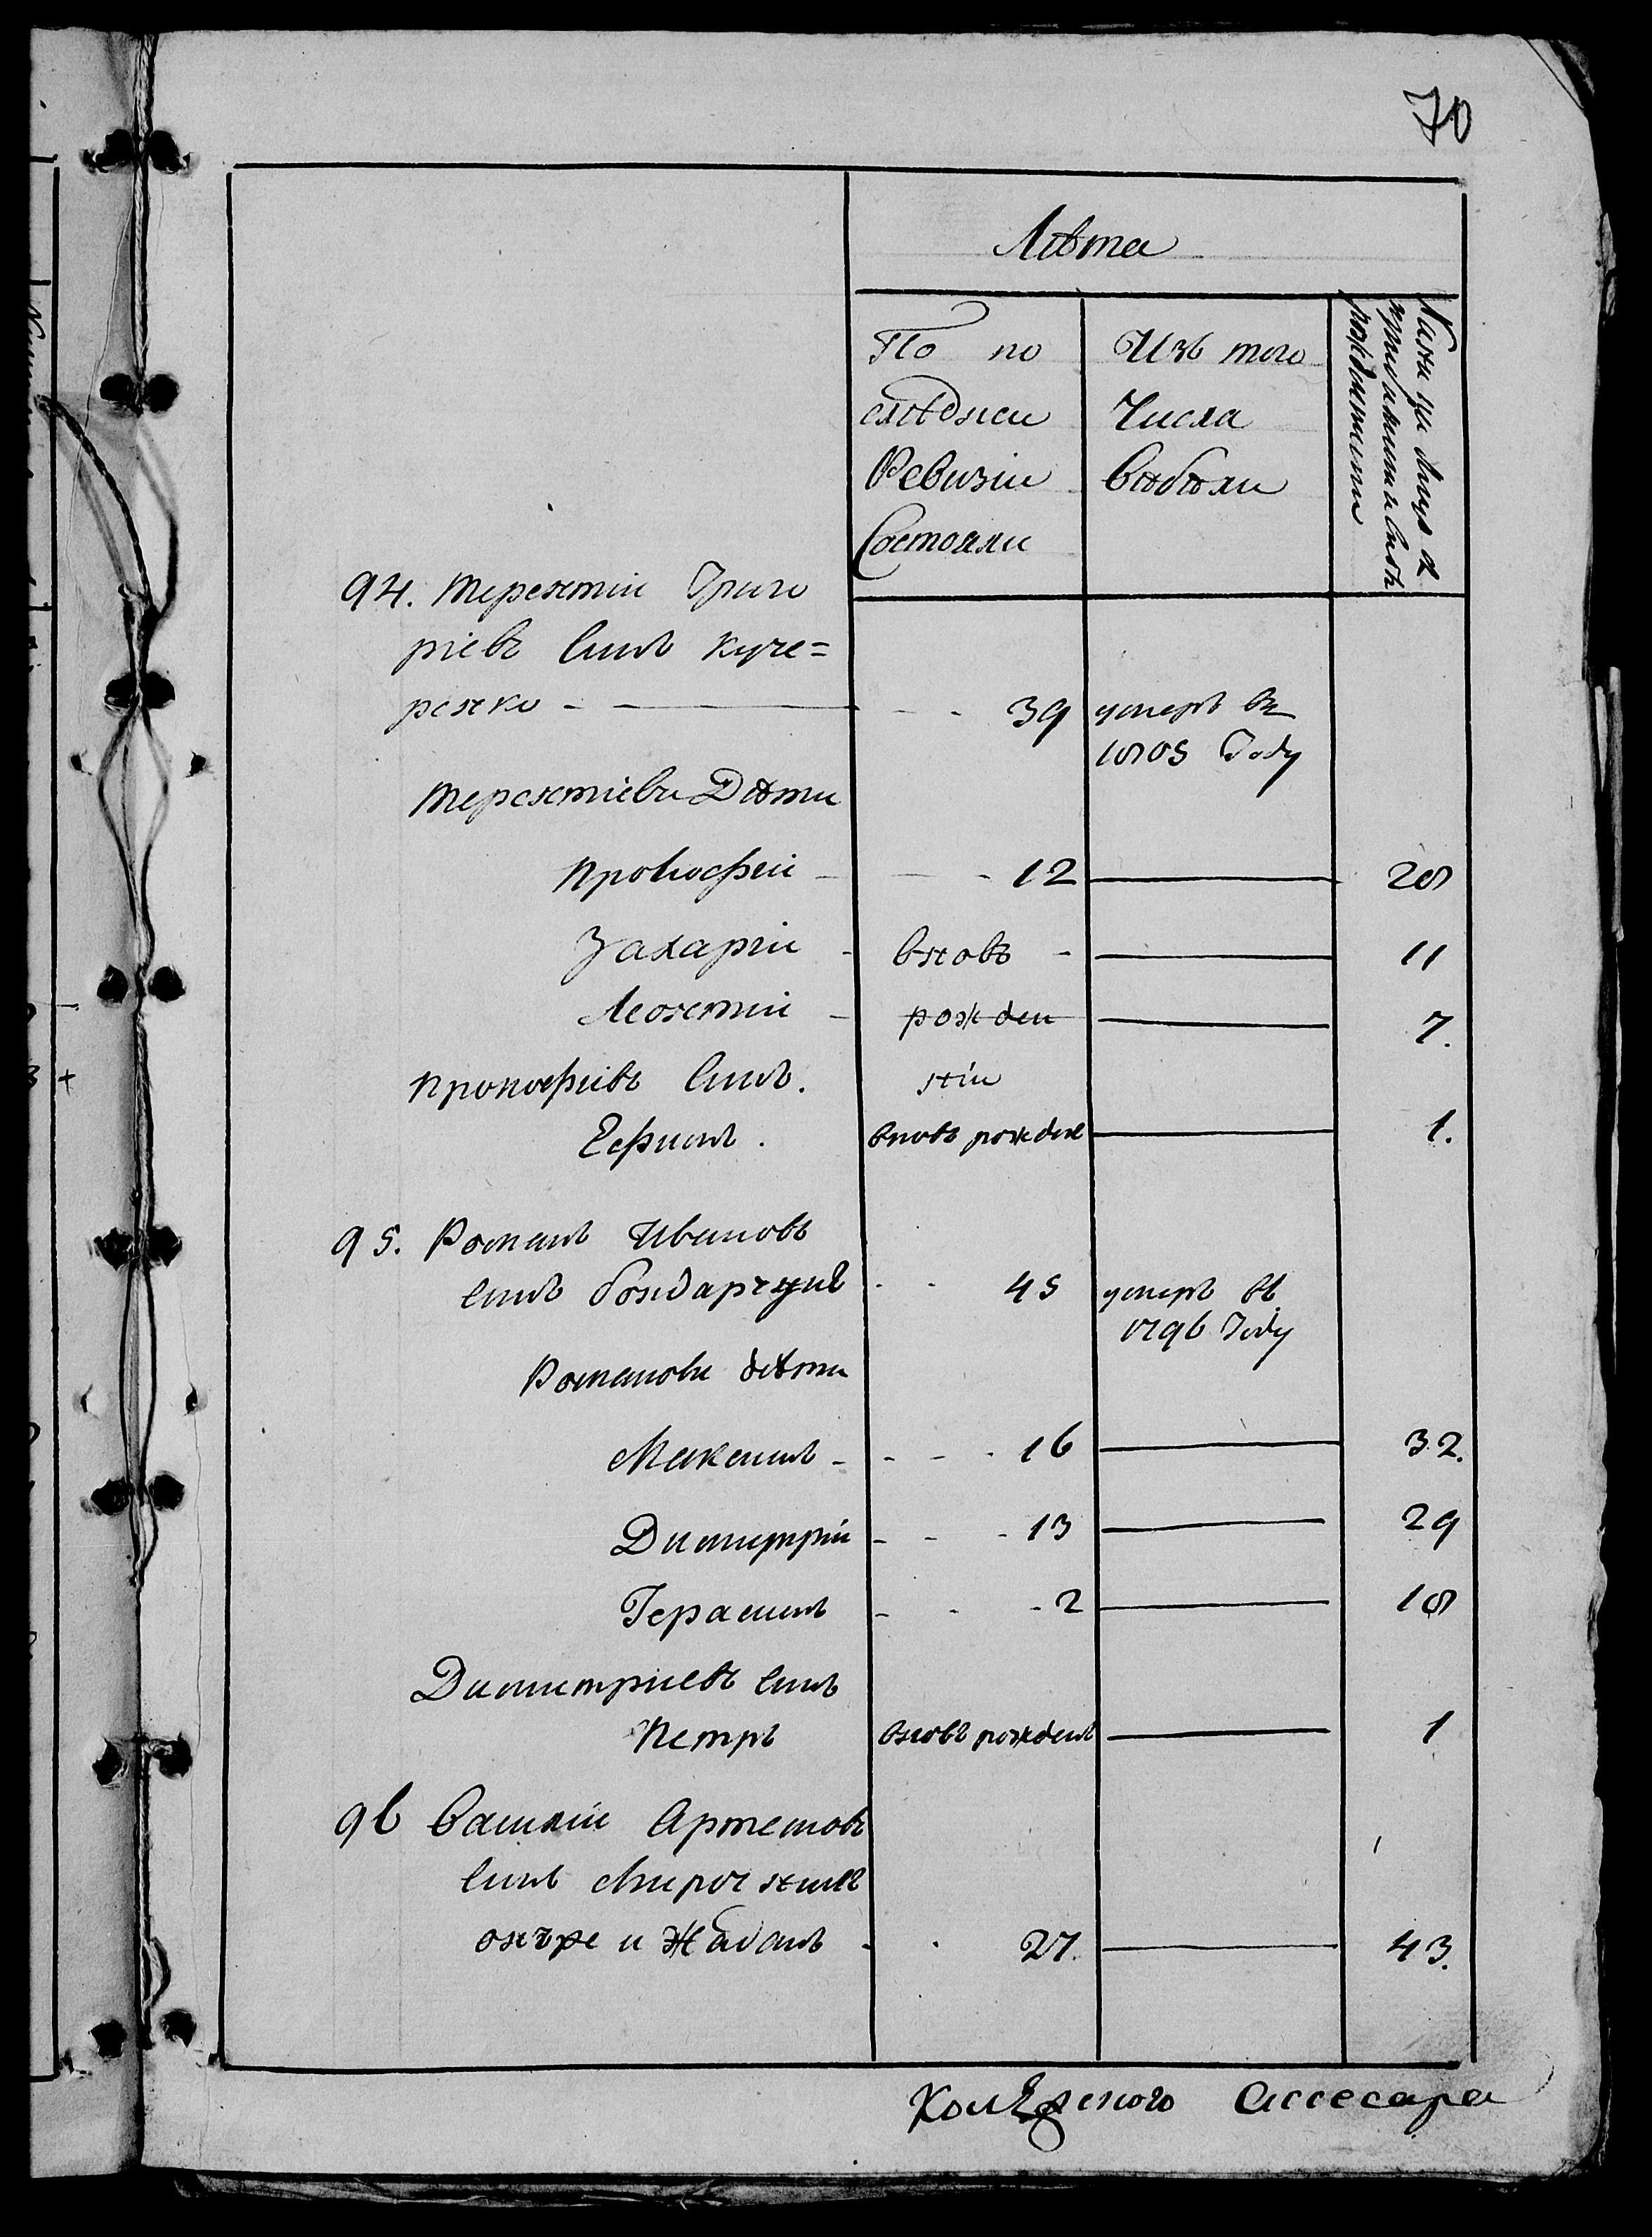 70
Лѣта
По по
слѣднеи
Ревизіи
Состояли
Изъ того
Числа
выбыли
94. Терентіи Григо
ріевъ Сынъ Куче=
ренко - - - 39 умеръ въ
1805 Году
Терентіевы Дѣти
Прокофеи - - - 12 28
Захаріи - вновь - 11
Леонтіи - рожден 7.
Прокофьевъ Сынъ. ніи
Ефимъ. вновь рожден 1.
95. Романъ Ивановъ
сынъ бондарчукъ - - 45 умеръ въ
1796 Году
Романовы дѣти
Максимъ - - - - 16 32.
Димитріи - - - 13 29
Герасимъ - - - 2 18
Димитріевъ сынъ
Петръ вновь рожденъ 1
96 Василіи Артемовъ
сынъ
онъ же и Жаданъ - - 27. 43.
Колежского Ассесара